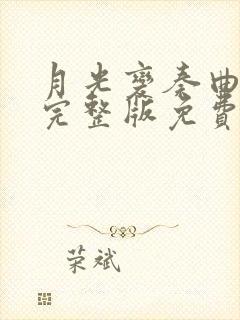 月光变奏曲
完整版免费
荣斌